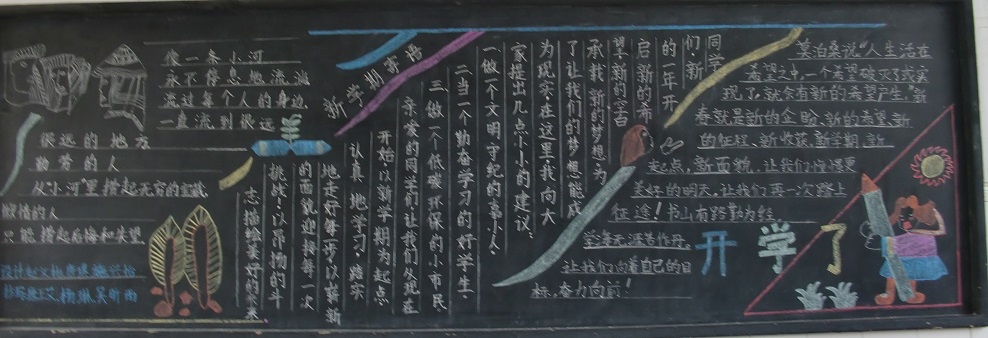 像一条小河
永不停息地流淌
流过每个人的身边
一直流到很远
很远的地方
勤劳的人
从"小河"里捞起无穷的宝藏
懒惰的人
只能捞起后悔和失望
新学期寄语
同学
们新
的一年开
启新的希
望,新的空白
承载新的梦想,为
了让我们的梦想能成
为现实在这里,我向大
家提出几点小小的建议。
一做一个文明守纪的小人。
二当一个勤奋学习的好学生。
三做一个低碳环保的小市民
亲爱的同学们让我们从现在
开始,以新学期为起点
认真地学习,踏实
地走好每一步以崭新
的面貌迎接每一次
挑战!以昂扬的斗
志描绘美好的未来。
莫泊桑说"人生活在
希望之中,一个希望破灭了或实
现了,就会有新的希望产生,"新
春就是新的企盼、新的希望、新
的征程、新收获、新学期、新
起点,新面貌,让我们憧憬更
美好的明天,让我们再一次踏上
征途!书山有路勤为径
学海无涯苦作舟。
让我们向着自己的目
标,奋力向前!
开学了